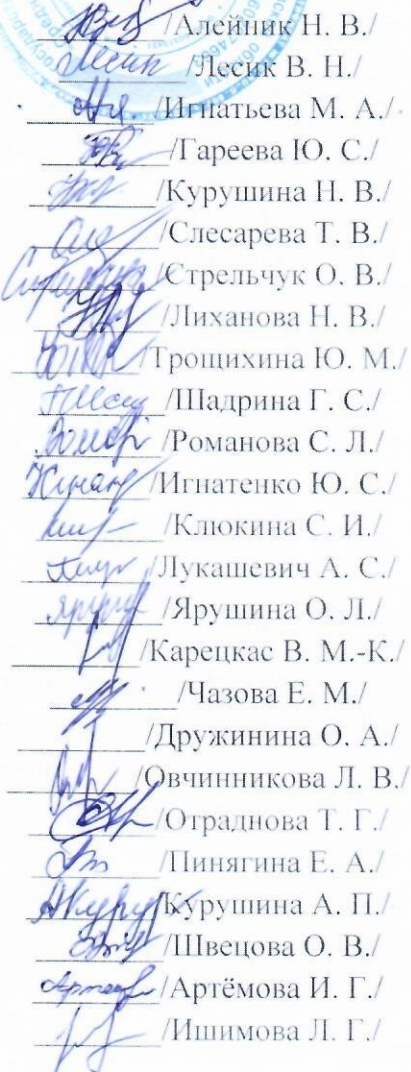 /Алейник Н. В./
/Лесик В. Н./
/Игнатьева М. А./
/Гареева Ю. С./
/Курушина Н. В./
/Слесарева Т. В./
/Стрельчук О. В./
/Лиханова Н. В./
/Трощихина Ю. М./
/Шадрина Г. С./
/Романова С. Л./
/Игнатенко Ю. С./
/Клюкина С. И./
/Лукашевич А. С./
/Ярушина О. Л./
/Карецкас В. М.-К./
/Чазова Е. М./
/Дружинина О. А./
/Овчинникова Л. В./
/Отраднова Т. Г./
/Пинягина Е. А./
/Курушина А. П./
/Швецова О. В./
/Артёмова И. Г./
/Ишимова Л. Г./